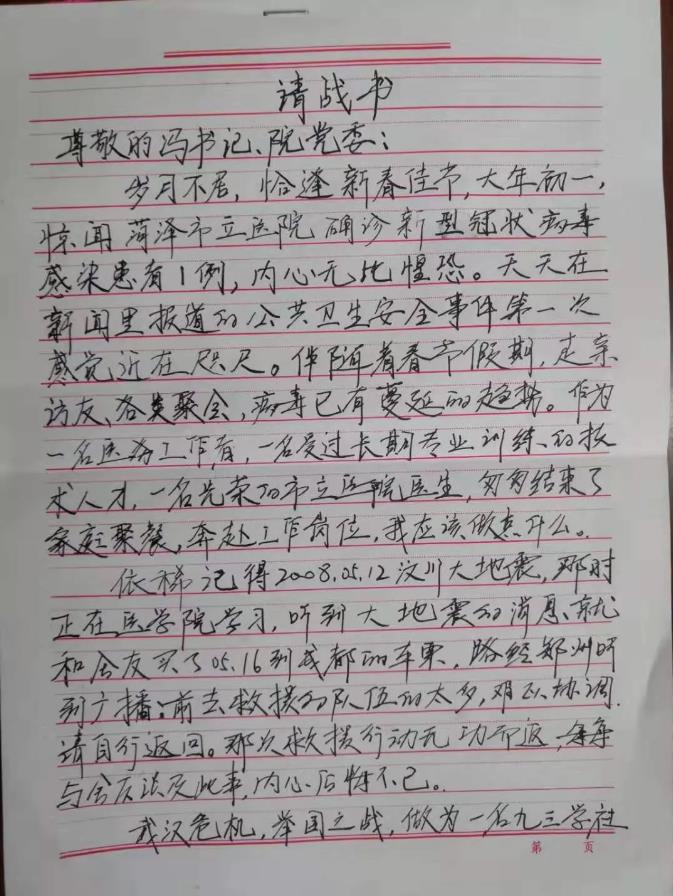 请战书
尊敬的冯书记、院党委：
岁月不居，恰逢新春佳节，大年初一，
惊闻菏泽市立医院确诊新型冠状病毒
感染患者1例，内心无比惶恐。天天在
新闻里报道的公共卫生安全事件第一次
感觉近在咫尺。伴随着春节假期，走亲
访友、各类聚会，病毒已有蔓延的趋势。作为
一名医务工作者，一名受过长期专业训练的技
术人才，一名光荣的市立医院医生，匆匆结束了
家庭聚餐，奔赴工作岗位，我应该做点什么。
依稀记得2008.05.12汶川大地震，那时
正在医学院学习，听到大地震的消息就
和舍友买了05.16到成都的车票，路经郑州听
到广播：前去救援的队伍的太多，难以协调，
请自行返回。那次救援行动无功而返，每每
与舍友谈及此事，内心后悔不已。
武汉危机，举国之战，做为一名九三学社
第 页